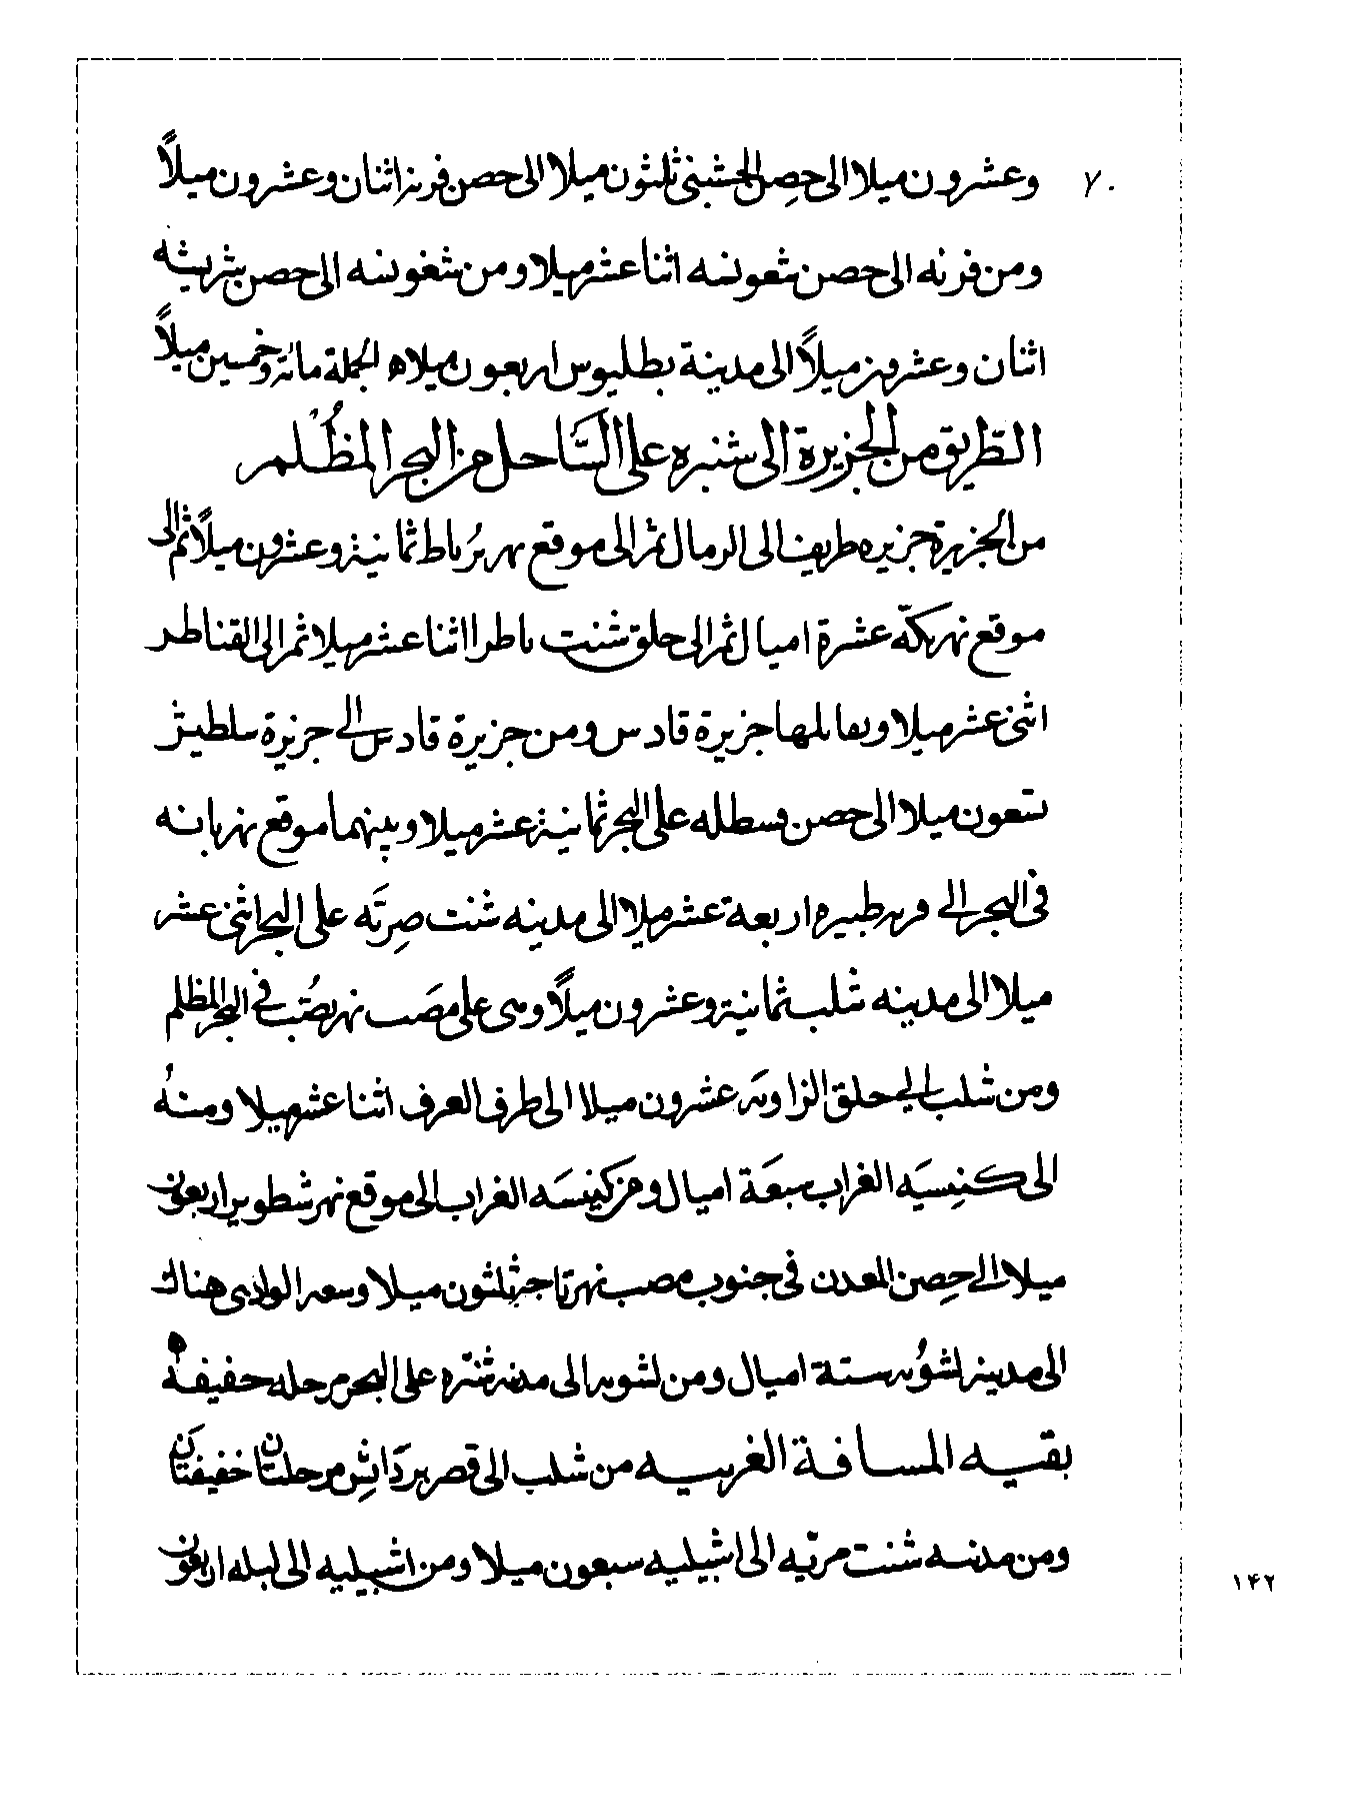 ٧٠ وعشرون ميلا الى حصن الجشبنى ثلثون ميلا الى حصن فرنه اثنان وعشرون ميلاً
ومن فرنه الى حصن شعونسه اثنا عشر ميلا ومن شغونسه الى حصن شريشه
اثنان وعشرون ميلاً الى مدينة بطليوس اربعون ميلا ه الجملة مائة وخمسين ميلاً
الطّريق من الجزيرة الى شنبره على السَّاحل من البحر المظُلم
من الجزيرة جزيره طريف الى الرمال ثم الى موقع نهر بُرباط ثمانية وعشرون ميلاً ثم الى
موقع نهر بكّه عشرة اميال ثم الى حلق شنت باطرا اثنا عشر ميلا ثم الى القناطر
اثنى عشر ميلا ويقابلها جزيرة قادس ومن جزيرة قادس الى جزيرة سلطيش
ستعون ميلا الى حصن قسطله على البحر ثمانية عشر ميلا وبينهما موقع نهر يانه
فى البحر الى قريه طبيره اربعة عشر ميلا الى مدينه شنت مرتَه على البحر اثنى عشر
ميلا الى مدينه شلب ثمانية وعشرون ميلاً وهى على مصَب نهر يصُب فى البحر المظلم
ومن شلب الى حلق الزاويَه عشرون ميلا الى طرف العرف اثنا عشر ميلا ومنهُ
الى كنِيسيَه الغراب سبعَة اميال ومن كنيسَه الغراب الى موقع نهر شطوبر اربعون
ميلا الى حِصن المعدن فى جنوب مصب نهر تاجه ثلثون ميلا وسعه الوادى هناك
الى مدينه لشوُبه ستة اميال ومن لشوبه الى مدنه شنتّره على البحر مرحله خفيفة ه
بقيه المسافة الغربيه من شلب الى قصر بردَانِش مرحلتان خفيفتان
ومن مدنه شنت مريّه الى اشبيليه سبعون ميلا ومن اشبيليه الى لبله اربعون
١٤٢